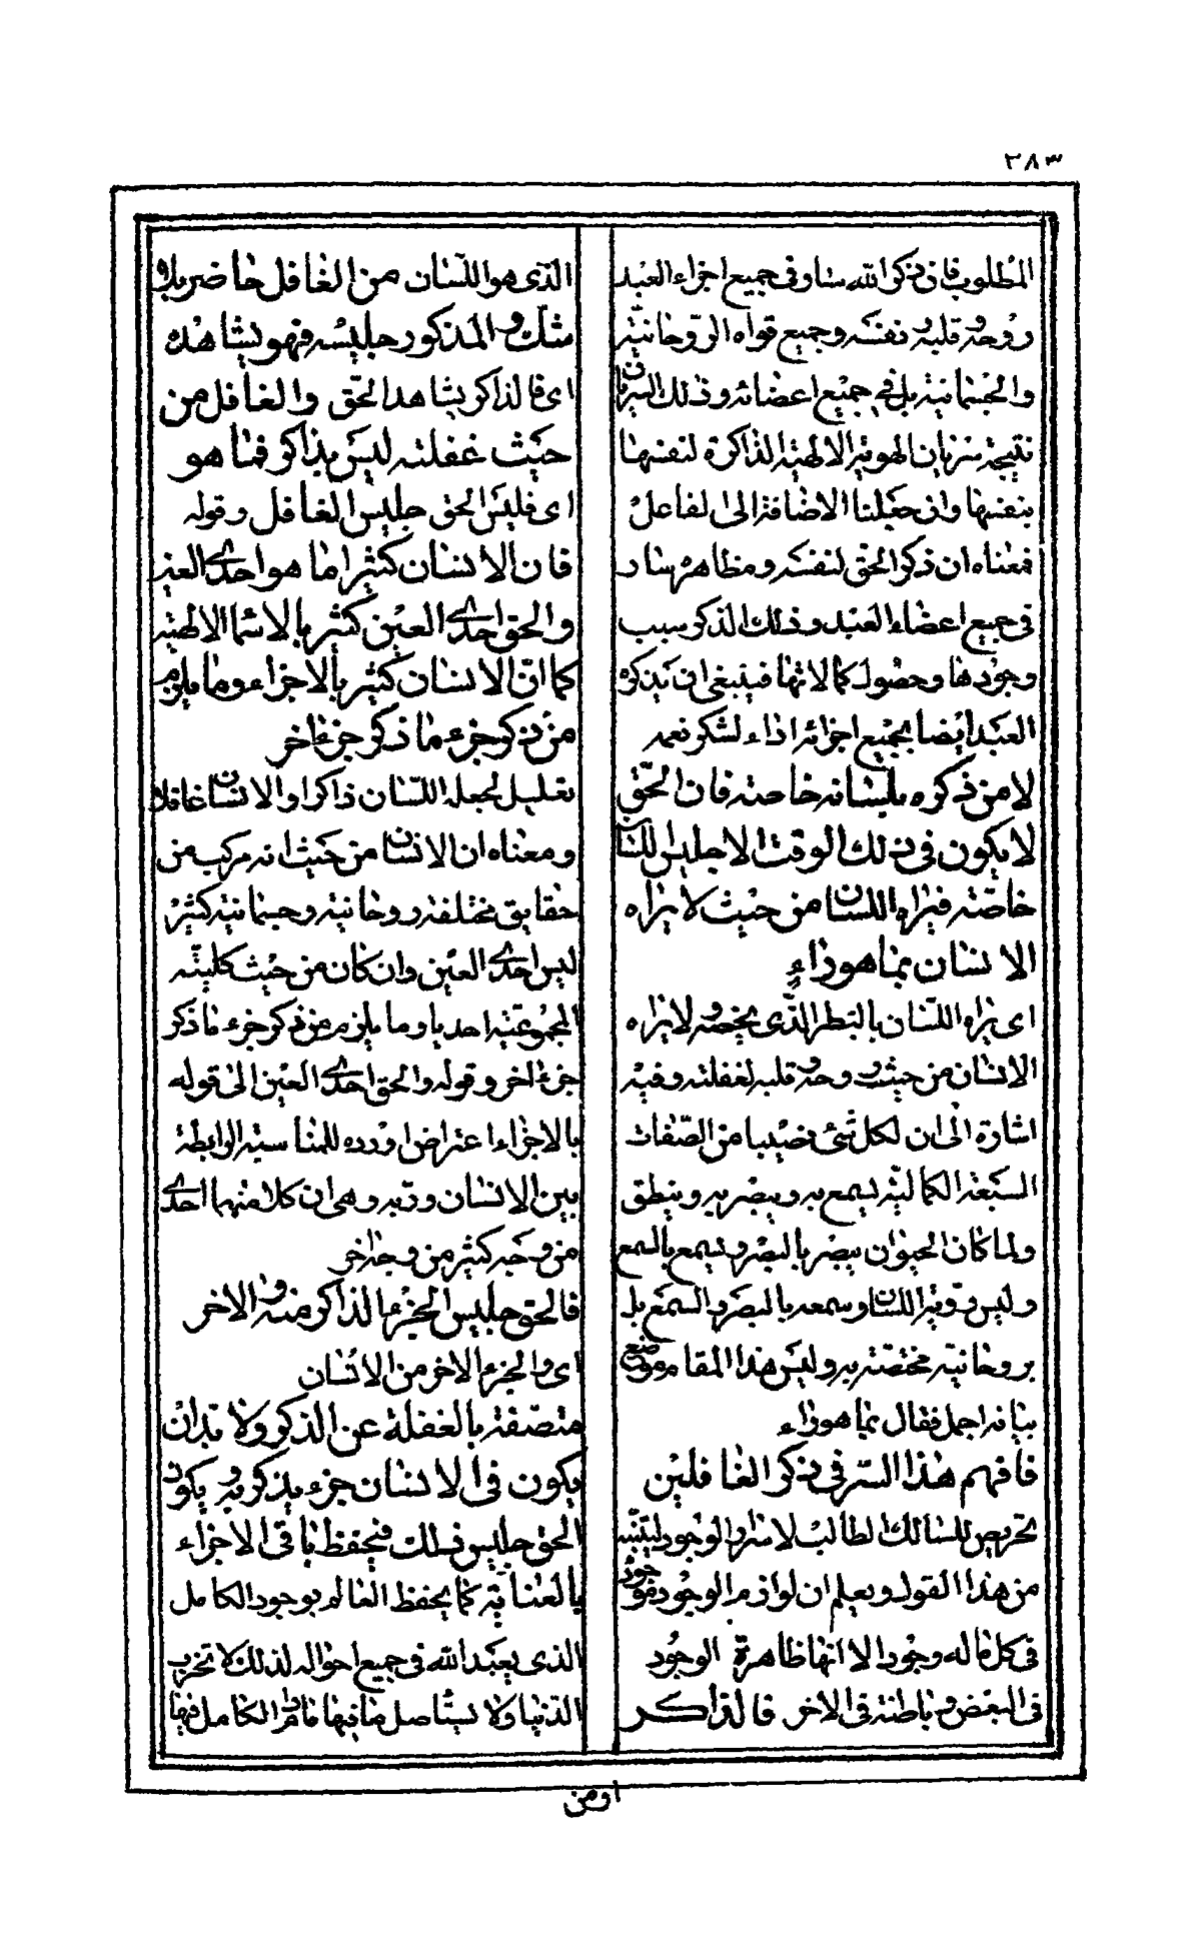 ٢٨٣
المطلوب فان ذكر الله سار فى جميع اجزاء العبد
روحه و قلبه و نفسه و جميع قواه الروحانية
والجسمانية بل فى جميع اعضائه و ذلك السريان
نتيجة سريان الهوية الالهية الذاكرة لنفسها
بنفسها وان جعلنا الاضافة الى الفاعل
فمعناه ان ذكر الحق لنفسه و مظاهره سار
فى جميع اعضاء العبد و ذلك الذكر سبب
وجودها و حصول كمالاتها فينبغى ان يذكره
العبد ايضا بجميع اجزائه اداء لشكر نعمه
لا من ذكره بلسانه خاصة فان الحق
لا يكون فى ذلك الوقت الا جليس اللسان
خاصّة فيراه اللسان من حيث لا يراه
الانسان بما هو راءٍ
اى يراه اللسان بالنظر الذى يخصه و لا يراه
الانسان من حيث روحه و قلبه لغفلته و فيه
اشارة الى ان لكل شئ نصيبا من الصفات
السبعة الكمالية يسمع به و يبصر به و ينطق
ولما كان الحيوان يبصر بالبصر و يسمع بالسمع
و ليس رؤية اللسان و سمعه بالبصر و السمع بل
بروحانية مختصّة به و ليس هذا المقام موضع
بيانه اجمل فقال بما هو راء
فافهم هذا السر فى ذكر الغافلين
تحريص للسالك الطالب لاسرار الوجود ليتنبه
من هذا القول و يعلم ان لوازم الوجود موجودة
فى كل ما له وجود الا انها ظاهرة الوجود
فى البعض و باطنة فى الاخر فالذاكر
الذى هو اللسان من الغافل حاضر بلا
شك و المذكور جليسه فهو يشاهده
اى فالذاكر يشاهد الحق و الغافل من
حيث غفلته ليس بذاكر فما هو
اى فليس الحق جليس الغافل و قوله
فان الانسان كثير اما هو احدى العين
والحق احدى العين كثير بالاسماء الالهية
كما ان الانسان كثير بالاجزاء و ما يلزم
من ذكر جزء ما ذكر جزء اخر
تعليل لجعله اللسان ذاكرا و الانسان غافلا
و معناه ان الانسان من حيث انه مركب من
حقايق مختلفة روحانية و جسمانية كثير
ليس احدى العين و ان كان من حيث كليته
المجموعية احديا و ما يلزم من ذكر جزء ما ذكر
جزء اخر و قوله و الحق احدى العين الى قوله
بالاجزاء اعتراض اورده للمناسبة الرابطة
بين الانسان و ربه و هى ان كلا منهما احدى
من وجه كثير من وجه اخر
فالحق جليس الجزء الذاكر منه و الاخر
اى و الجزء الاخر من الانسان
متصفة بالغفلة عن الذكر و لا بد ان
يكون فى الانسان جزء يذكر به و يكون
الحق جليس ذلك فيحفظ باقى الاجزاء
بالعناية كما يحفظ العالم بوجود الكامل
الذى يعبد الله فى جميع احواله لذلك لا تخرب
الدنيا و لا يستاصل ما فيها ما دام الكامل فيها
او من